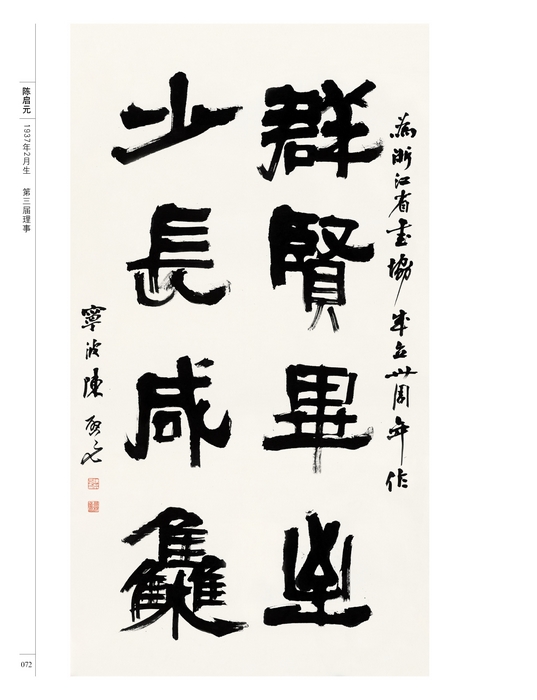 陈启元
1937年2月生 第三届理事
为浙江省书協成立卅周年作
群賢畢至
少長咸集
寧波陳啟元
072